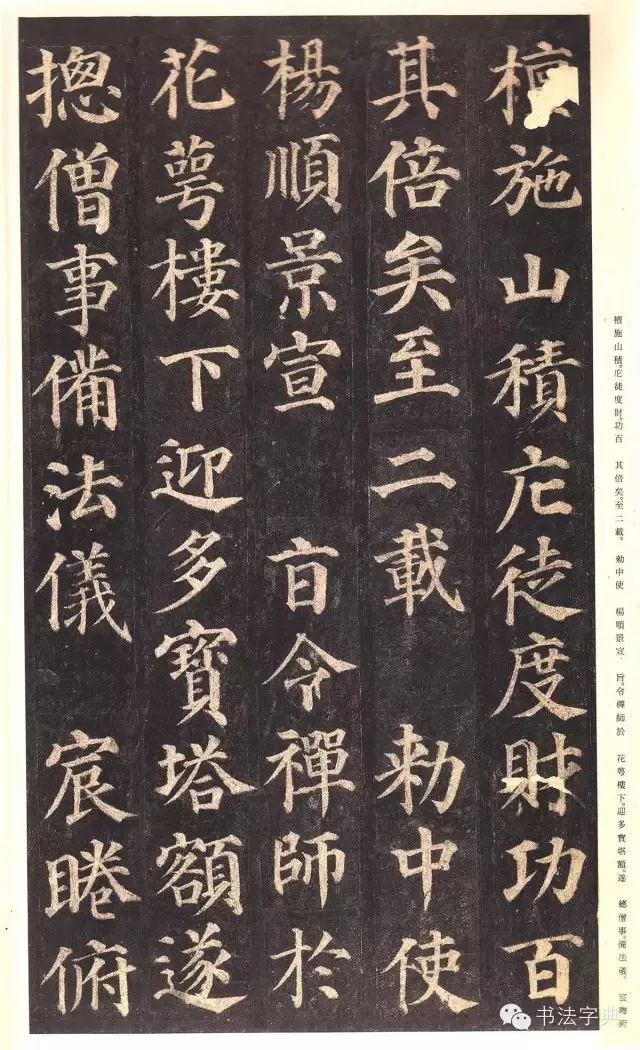 檀施山積庀徒度財功百
其倍矣至二載 勅中使
楊順景宣 旨令禪師於
花萼樓下迎多寶塔額遂
揔僧事備法儀 宸睠俯
檀施山積。庀徒度財。功百 其倍矣。至二載。 勅中使 楊順景宣 旨。令禪師於 花萼樓下。迎多寶塔額。遂 總僧事。備法儀。 宸睠俯
书法字典